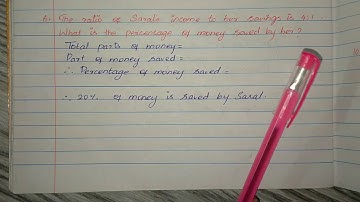 6. The ratio of Sara's income to her savings is 4:1
What is the percentage of money saved by her?
Total parts of money=
Part of money saved=
∴ Percentage of money saved =
∴ 20% of money is saved by Sara.